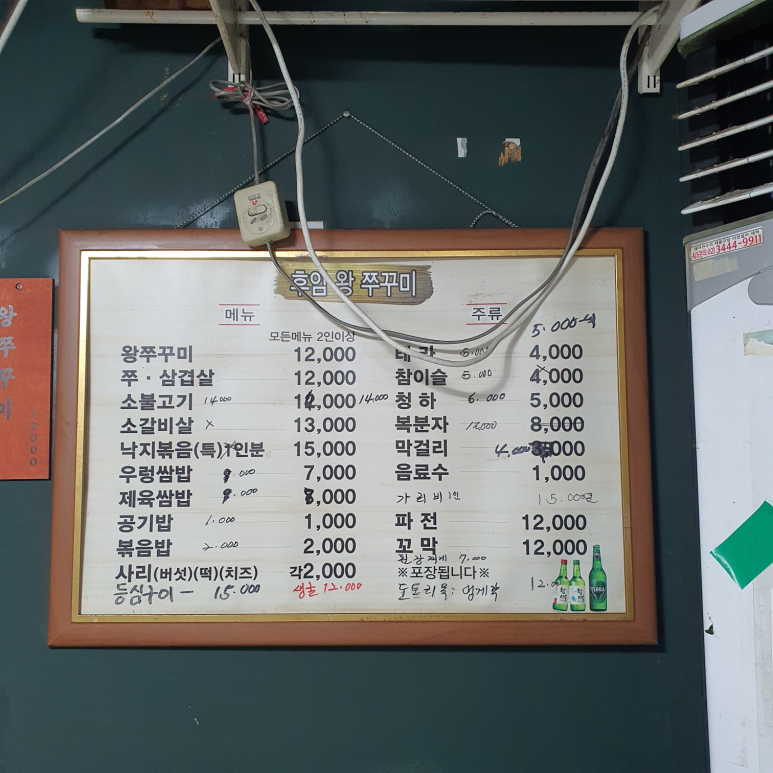 후암 왕 쭈꾸미
메뉴
모든메뉴 2인이상
왕쭈꾸미 12,000
쭈·삼겹살 12,000
소불고기 14.000
소갈비살 x 13,000
낙지볶음(특) 1인분 15,000
우렁쌈밥 9.000 7,000
제육쌈밥 9.000 8,000
공기밥 1.000 1,000
볶음밥 2.000 2,000
사리(버섯)(떡)(치즈) 각2,000
등심구이 - 15.000 생굴 12.000
주류
5.000
5.000 4,000
참이슬 5.000 4,000
14.000 청하 6.000 5,000
복분자 8,000
막걸리 4.000
음료수 1,000
가리비 1인 15.00
파전 12,000
꼬막 12,000
된장찌게 7.000
※포장됩니다※
도토리묵: 12.0
TERRA
왕쭈꾸미
12000
3444-9911